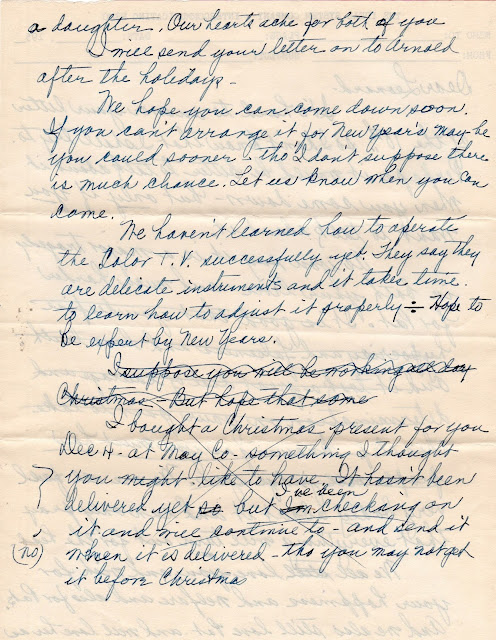 a daughter. Our hearts ache for both of you
I will send your letter on to Arnold
after the holidays -
We hope you can come down soon.
If you can't arrange it for New Year's may-be
you could sooner - tho I don't suppose there
is much chance. Let us know when you can
come.
We haven't learned how to operate
the Color T.V. successfully yet. They say they
are delicate instruments and it takes time
to learn how to adjust it properly ÷ Hope to
be expert by New Years.
I suppose you will be working all day
Christmas - But hope that some
I bought a Christmas present for you
Dec 4 - at May Co - something I thought
you might like to have. It hasn't been
I've been
delivered yet so but I'm checking on
it and will continue to - and send it
(no) when it is delivered - tho you may not get
it before Christmas